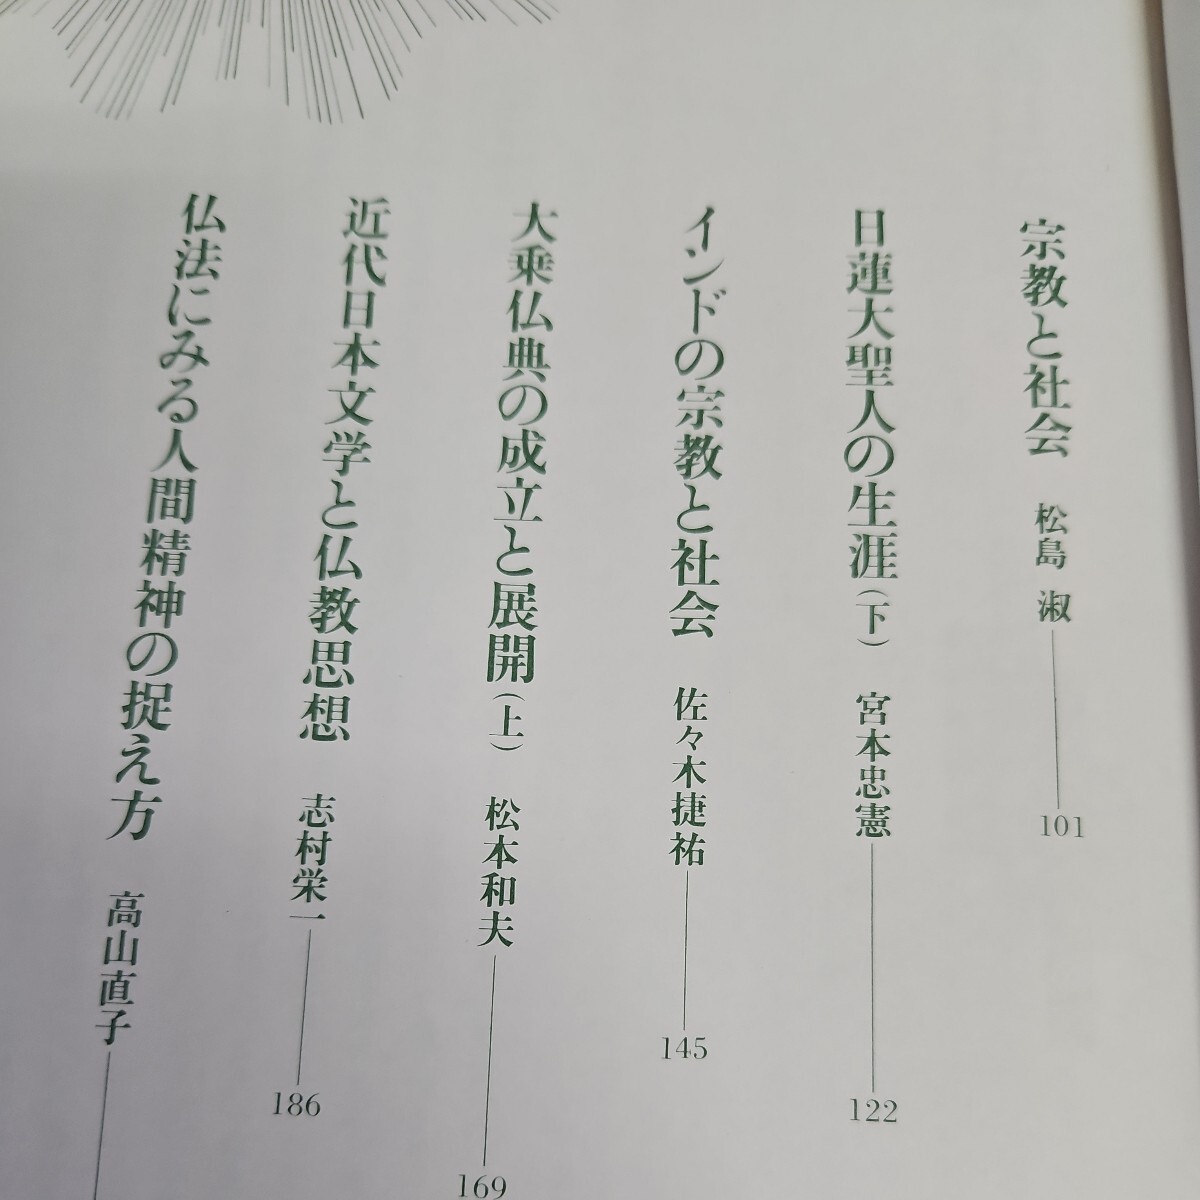 宗教と社会 松島 淑 101
日蓮大聖人の生涯(下) 宮本忠憲 122
インドの宗教と社会 佐々木捷祐 145
大乗仏典の成立と展開(上) 松本和夫 169
近代日本文学と仏教思想 志村栄一 186
仏法にみる人間精神の捉え方 高山直子